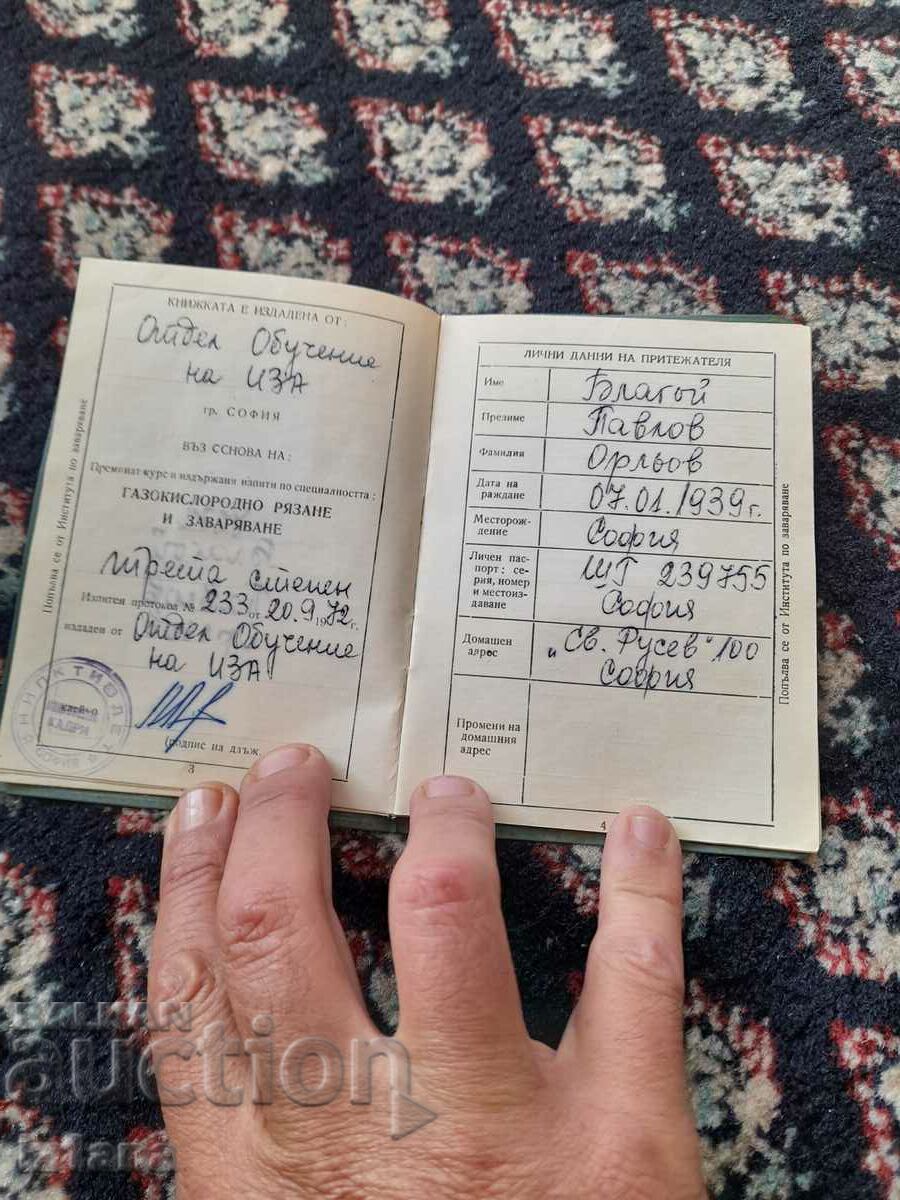 КНИЖКАТА Е ИЗДАДЕНА ОТ:
Отдел Обучение
на ИЗА
гр. СОФИЯ
ВЪЗ ССНОВА НА:
Преминат курс и издържани изпити по специалността:
ГАЗОКИСЛОРОДНО РЯЗАНЕ
И ЗАВАРЯВАНЕ
трета степен
Изпитен протокол № 233 от 20.9.1972 г.
издаден от Отдел Обучение
на ИЗА
(подпис на длъж.
3
Попълва се от Института по заваряване
КАДРИ
СОФИЯ
ЛИЧНИ ДАННИ НА ПРИТЕЖАТЕЛЯ
Име Благой
Презиме Павлов
Фамилия Орльов
Дата на раждане 07.01.1939 г.
Месторож-
дение София
Личен пас-
порт: се-
рия, номер
и местоиз-
даване
239755
София
Домашен
адрес
„Св. Русев" 100
София
Промени на
домашния
адрес
4
Попълва се от Института по заваряване
BALKAN
auction